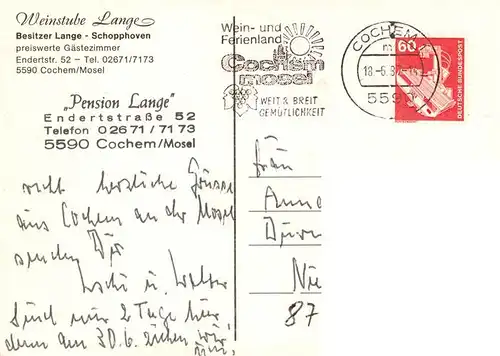 Weinstube Lange
Besitzer Lange - Schopphoven
preiswerte Gästezimmer
Endertstr. 52 – Tel. 02671/7173
5590 Cochem/Mosel
„Pension Lange"
Endertstraße 52
Telefon 02671/7173
5590 Cochem/Mosel
recht herzliche Grüsse
aus Cochem an der Mosel
senden Dir
u. Walter
Sind nur 2 Tage hier
denn am 30.6. ziehen wir
Wein- und
Ferienland
Cochem
mosel
WEIT & BREIT
GEMÜTLICHKEIT
COCHEM
m
18.-6.
60
DEUTSCHE BUNDESPOST
Frau
Anne
Nie
87